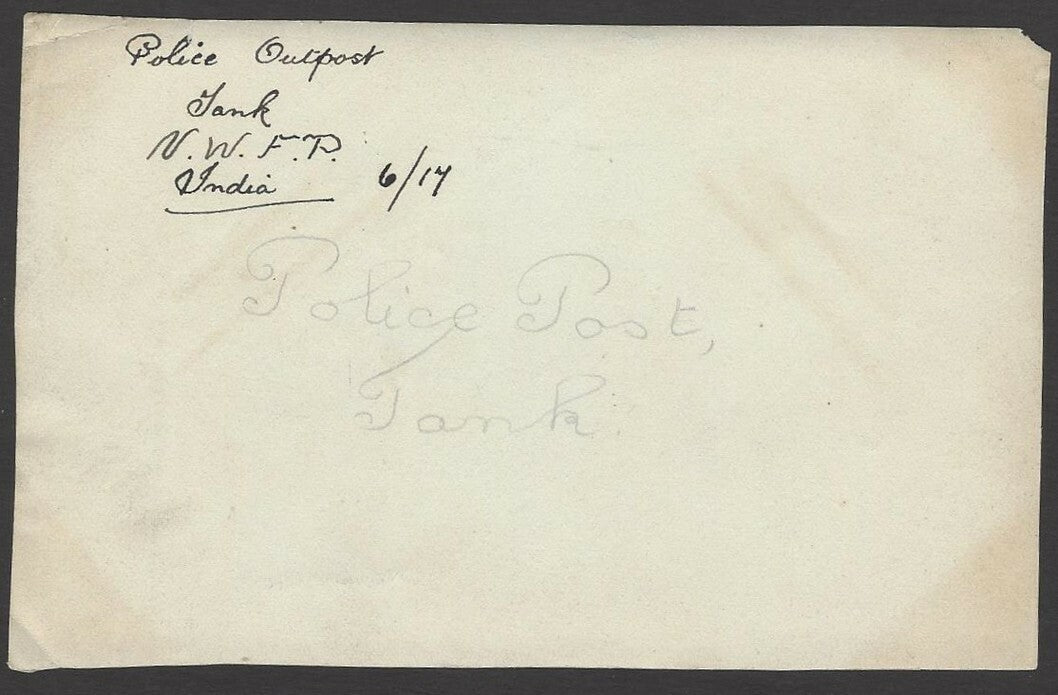 Police Outpost
Tank
N.W.F.P.
India 6/17
Police Post,
Tank.